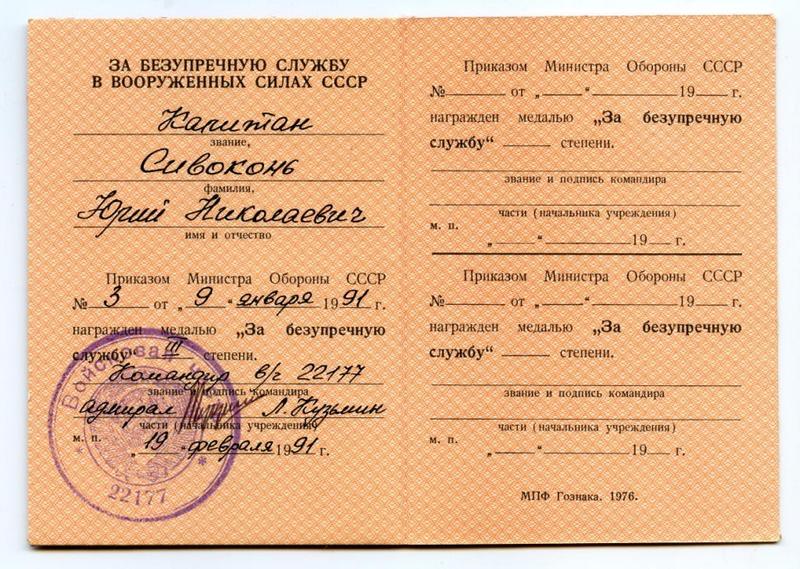 ЗА БЕЗУПРЕЧНУЮ СЛУЖБУ
В ВООРУЖЕННЫХ СИЛАХ СССР
Капитан
звание,
Сивоконь
фамилия,
Юрий Николаевич
имя и отчество
Приказом Министра Обороны СССР
№ 3 от „ 9 “ января 1991 г.
награжден медалью „За безупречную
службу“ III степени.
Командир в/ч 22177
звание и подпись командира
адмирал Л. Кузьмин
части (начальника учреждения)
м. п. „ 19 “ февраля 1991 г.
Войсковая
22177
Приказом Министра Обороны СССР
№ от „ “ 19 г.
награжден медалью „За безупречную
службу“ степени.
звание и подпись командира
части (начальника учреждения)
м. п.
„ “ 19 г.
Приказом Министра Обороны СССР
№ от „ “ 19 г.
награжден медалью „За безупречную
службу“ степени.
звание и подпись командира
части (начальника учреждения)
м. п.
„ “ 19 г.
МПФ Гознака. 1976.